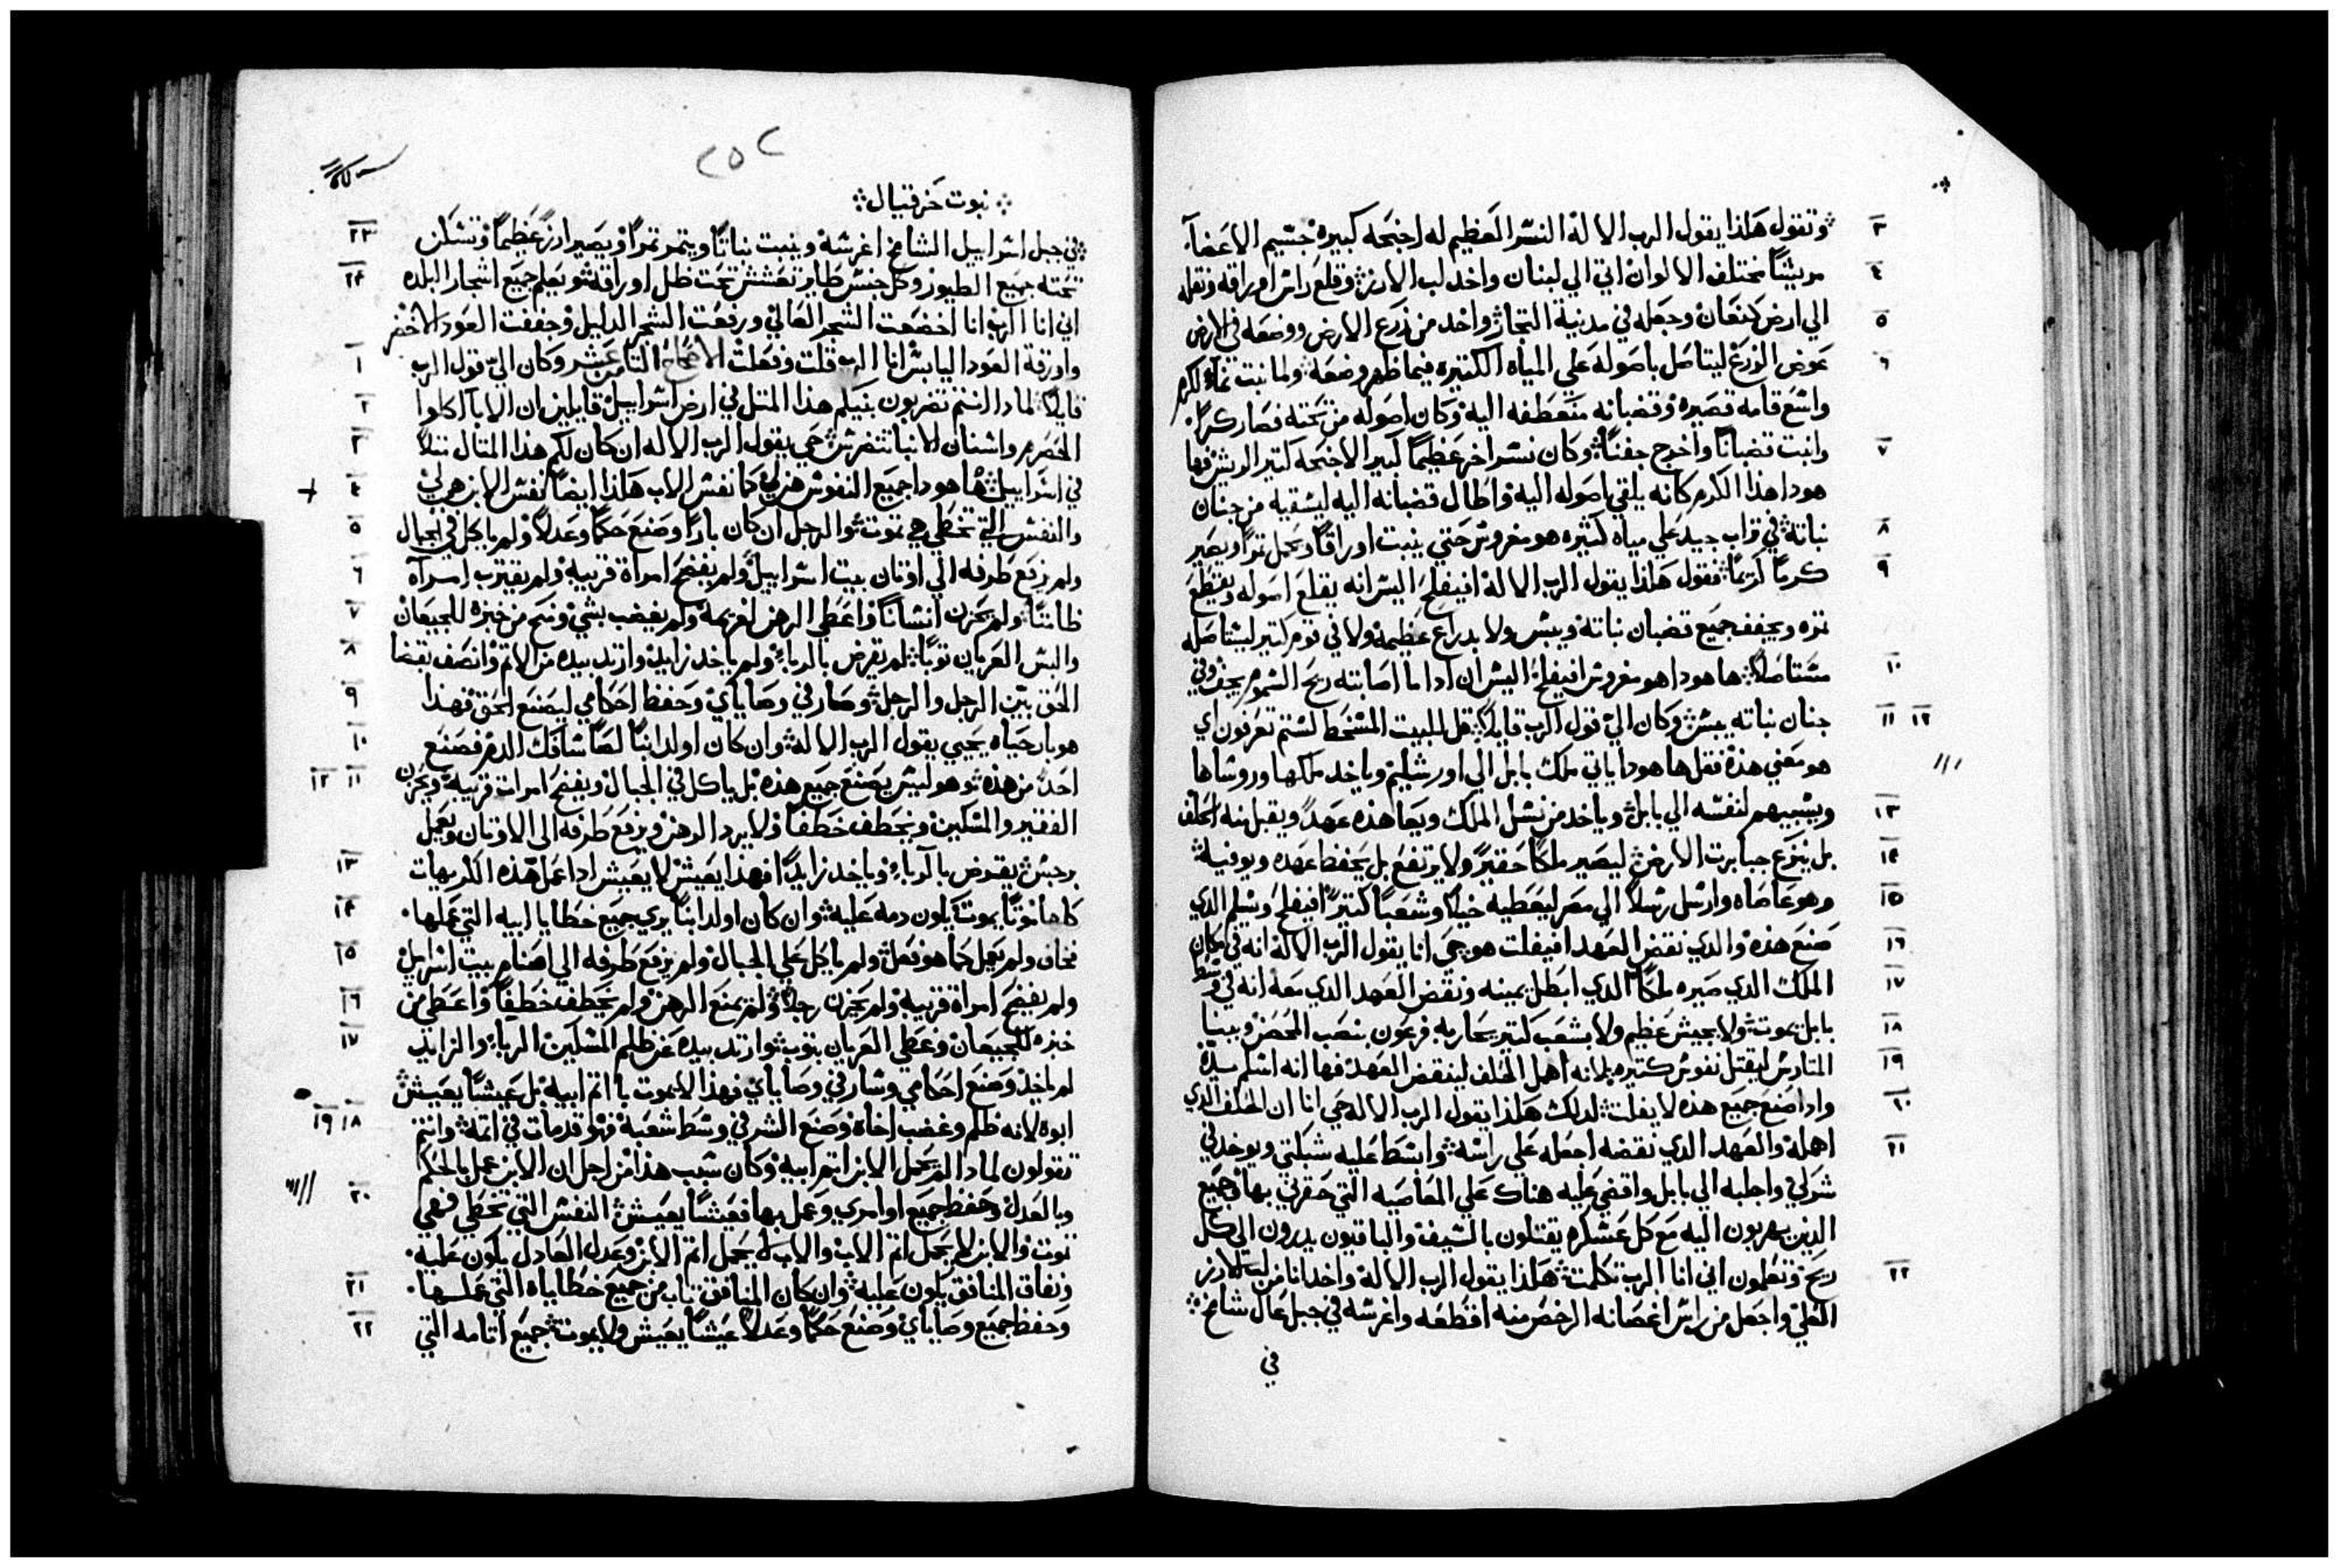 ٣ وتقول هكذا يقول الرب الالهْ النسْر العَظيم له اجنحَه كبيرهْ جسْيم الاعَضآ.
٤ مريشًا مختلف الالوانْ اتي الي لبنان واخد لب الارز؞ وقلع راسْ اوراقه ونقله
٥ الي ارض كنعَان وجعَله في مدينة التجاز واخد من زرَع الارض ووضعَه في الارض
٦ عَوض الزرَعْ ليتاصَل باصَوله عَلي المياه الكتيره فيما ظهر وضعَه ولما نبت نماء الكرم
واتسْعَ قامه قصَيره وقضبانه منَعطفه اليهْ وكان اصَوله من تحَته فصَار كرمًا.
٧ وانبت قضبانًا واخرج جفنًا؞ وكان نسْر اخر عَظيمًا كبير الاجنحَه كتير الريشْ فها
هودا هذا الكرم كانه يلقي اصَوله اليهْ واطال قضبانه اليه ليسْقيه من جنان
٨ نباتهْ في تراب جيد عَلي مياه كتيره هو مغروسْ حَتي ينبت اوراقًا ويحَمل تمرًا ويصَير
٩ كرمًا كريمًا؞ فقول هَكذا يقول الرب الالهْ افيفلحَ اليسْ انه يقلعَ اصوله ويقطعَ
تمره ويجفف جميعَ قضبان نباتهْ ويبسْ ولا بدراعَ عَظيمهْ ولا في قوم كتير ليسْتاصَله
١٠ مسْتاصَلًا؞ ها هودا هو مغروسْ افيفلحَ اليسْ ان اداما اصَابته ريحَ السْموم يجف وفي
١١ ١٢ جنان نباته يبسْ؞ وكان اليْ قول الرب قايلًا؞ قل للبيت المسْخط لسْتم تعَرفون اي
هو معَني هذهْ فقل ها هودا ياتي ملك بابل الي اورشليم وياخد ملكها وروسْاها
١٣ ويسْبيهم لنفسْه الي بابل؞ وياخد من نسْل الملك ويعَاهده عَهدًا ويقبل منه الحَلف
١٤ بل ينزعَ جبابرت الارض؞ ليصَير ملكًا حَقيرًا ولا يرتفعَ بل يحَفظ عَهده ويوفيه؞
١٥ وهو عَاصَاه وارسْل رسْلًا الي مصَر ليعَطيه خيلًا وشعَبًا كتيرًا افيفلحَ ويسْلم الدي
١٦ صَنعَ هذهْ والدي نقض العَهد افيفلت هو حَي انا يقول الرب الالهْ انه في مكان
١٧ الملك الدي صَيره ملكًا الدي ابطل يمينه ونقض العَهد الدي معَه انه في وسْط
١٨ بابل يموت؞ ولا بجيش عَظيم ولا بشعَب كتير يحَاربه فرعَون بنصَب المحَصَر وببنا
١٩ المتارسْ ليقتل نفوسْ كتيره؞ لانه اهمل الحَلف لينقض العَهد؞ فها انه اسْلم يدهْ
٢٠ وادا صَنعَ جميعَ هذه لا يفلت؞ لدلك هكذا يقول الرب الاله حَي انا ان الحَلف الدي
٢١ اهملهْ والعَهد الدي نقضه اجعَله عَلي راسْه؞ وابسْط عَليه شبكتي ويوخد في
شركي؞ واجلبه الي بابل واقضي عَليه هناك عَلي المعَاصَيه التي حَقرني بها؞ وجميعَ
الدين يهربون اليه معَ كل عَسْكره يقتلون بالسْيف؞ والباقيون يدرون الي كل
٢٢ ريحَ وتعَلمون اني انا الرب تكلمت؞ هَكذا يقول الرب الالهْ واخد انا من لب الارز
العَلي واجعَل من راسْ اغصَانه الرخصَ منه اقطعَه واغرسْه في جبل عَال شامخ؞
في
٢٥٢
؞ نبوت حَزقيال ؞
٢٣ في جبل اسْراييل الشامخ اغرسْهْ وينبت نباتًا ويتمر تمرًا ويصَير ارزًا عَظيمًا وتسْكن
٢٤ تحَته جميعَ الطيورْ وكل جنسْ طاير تعَشش تحَت ظل اوراقه؞ ويعَلم جميعَ اشجار البلده
اني انا الرب انا اخضعَت الشجر العَاليْ ورفعَت الشجر الدليل وجففت العَود الاخضر
١ واورقة العَود اليابسْ انا الرب قلت وفعَلت الاصَحَاح التامن عَشر وكان اليّ قول الرب
٢ قايلًا؞ لمادا انتم تضربون بينكم هذا المتل في ارض اسْراييل قايلين ان الابآ اكلوا
٣ الحَصَرم واسْنان الابنا تتضرسْ؞ حَي يقول الرب الاله ان كان لكم هذا المتال تتلًا
٤ في اسْراييل؞ ها هودا جميعَ النفوسْ هن ليْ كما نفسْ الاب هَكذا ايضًا نفسْ الابن هي ليْ
٥ والنفسْ التي تخطي هي تموت؞ والرجل ان كان بارًا وصَنعَ حَكمًا وعَدلًا؞ ولم ياكل في الجبال
٦ ولم يرفعَ طرفه الي اوتان بيت اسْراييل ولم يفضحَ امراة قريبهْ ولم يقترب امرآه
٧ طامتًا؞ ولم يحَزن انسْانًا واعَطي الرهن لغريمهْ ولم يغضب بشيْ ومنحَ من خبزه للجيعَانْ
٨ والبسْ العَريان توبًا؞ لم يقرض بالرباءْ ولم ياخد زايدْ وارتد بيده من الاتم وانصَف بقضا
٩ الحَق بين الرجل والرجل؞ وصَار في وصَاياي وحَفظ احَكامي ليصَنعَ الحَق؞ فهذا
١٠ هو بار حَياه يحَيي يقول الرب الالهْ؞ وان كان اولد ابنًا لصًا سْافك الدم فصَنعَ
١١ ١٢ احَدًا من هذه؞ وهو ليسْ يصَنعَ جميعَ هذه بل ياكل في الجبال ويفضحَ امرات قريبهْ؞ ويحَزن
الفقير والمسْكين ويخطف خَطفًا ولا يرد الرهن ويرفعَ طرفه الي الاوتان ويعَمل
١٣ رجسْ؞ يقرض بالرباءْ وياخد زايدًا افهذا يعَيشْ لا يعَيش ادا عَمل هذه الكريهات
١٤ كلها موتًا يموت يكون دمه عَليه؞ وان كان اولد ابنًا يري جميعَ خطايا ابيه التي عَملها.
١٥ فخاف ولم يعَمل كما هو فعَل؞ ولم ياكل عَلي الجبال ولم يرفعَ طرفه الي اصَنام بيت اسْراييل
١٦ ولم يفضحَ امراة قريبهْ ولم يحَزن رجلًا؞ ولم يمنعَ الرهن ولم يخطف خَطفًا واعَطي من
١٧ خبزه للجيعَانْ وغطي العَريان بتوب؞ وارتد بيده عَن ظلم المسْكين الرباءْ والزايد
لم ياخد وصَنعَ احَكامي وسْار في وصَاياي؞ فهذا لا يموت باتم ابيهْ بل عَيشًا يعَيش؞
١٨ ١٩ ابوه لانه ظلم وغضب اخاهْ وصَنعَ الشر في وسْط شعَبهْ فهو قد مات في اتمه؞ وانتم
تقولون لمادا لم يحَمل الابن اتم ابيهْ وكان سْبب هذا من اجل ان الابن عَمل بالحَكم
٢٠ وبالعَدل وحَفظ جميعَ اوامري وعَمل بها فعَيشًا يعَيش؞ النفسْ التي تخطي فهي
تموت والابن لم يحَمل اتم الابْ والاب لا يحَمل اتم الابن؞ وعَدل العَادل يكون عَليه.
٢١ ونفاق المنافق يكون عَليه؞ وان كان المنافق تاب من جميعَ خطاياه التي عَملها.
٢٢ وحَفظ جميعَ وصَاياي وصَنعَ حَكمًا وعَدلًا عَيشًا يعَيش ولا يموت؞ جميعَ اتامه التي